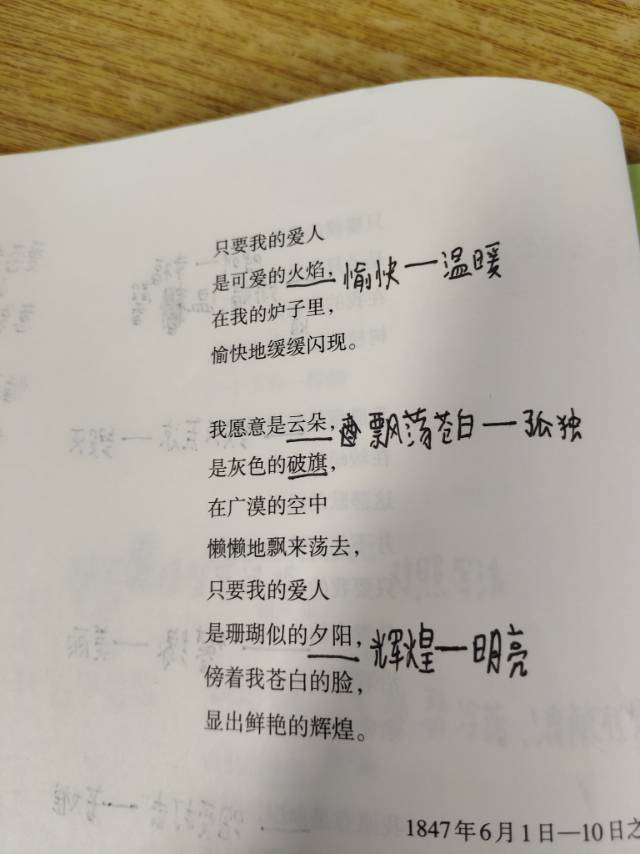 只要我的爱人
是可爱的火焰，愉快—温暖
在我的炉子里，
愉快地缓缓闪现。
我愿意是云朵，飘荡苍白—孤独
是灰色的破旗，
在广漠的空中
懒懒地飘来荡去，
只要我的爱人
是珊瑚似的夕阳，辉煌—明亮
傍着我苍白的脸，
显出鲜艳的辉煌。
1847年6月1日—10日之